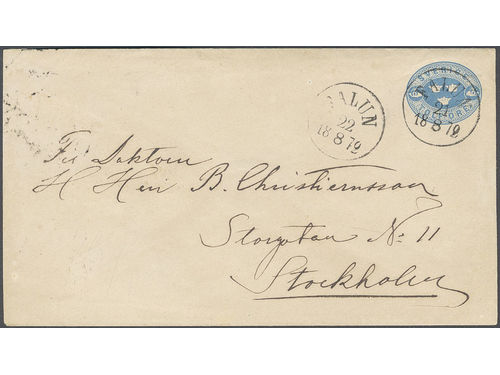 FALUN
22
18 8 72
SVERIGE
TOLF ÖRE
FALUN
22
18 8 72
Till Doktorn
H Herr B. Christiernsson
Storgatan No: 11
Stockholm